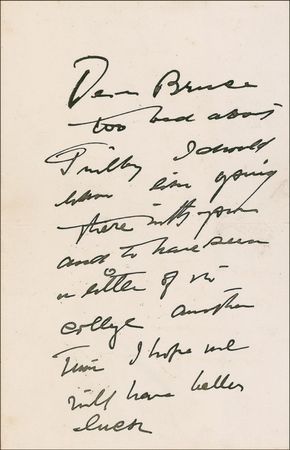 Dear Bruce
too bad about
Trilby I should
have liked going
there with you
and to have seen
a little of the
college another
time I hope we
will have better
luck